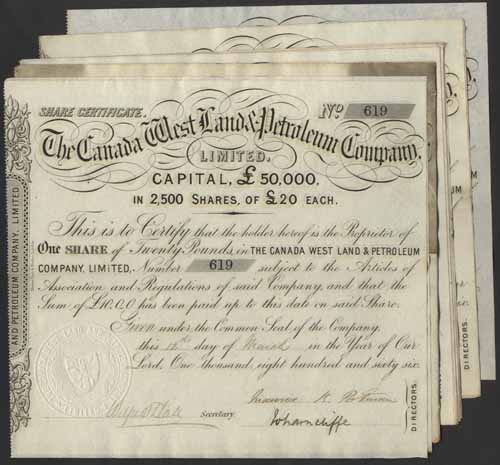 SHARE CERTIFICATE.
No 619
The Canada West Land & Petroleum Company,
LIMITED.
CAPITAL, £50,000.
IN 2,500 SHARES, OF £20 EACH.
This is to Certify that the holder hereof is the Proprietor of
One SHARE of Twenty Pounds, in THE CANADA WEST LAND & PETROLEUM
COMPANY, LIMITED. Number 619 subject to the Articles of
Association and Regulations of said Company, and that the
Sum of £10.0.0 has been paid up to this date on said Share.
Given under the Common Seal of the Company,
this 12th day of March in the Year of Our
Lord, One thousand, eight hundred and sixty six.
Secretary.
Wharncliffe
DIRECTORS.
AND PETROLEUM COMPANY, LIMITED.
DIRECTORS.